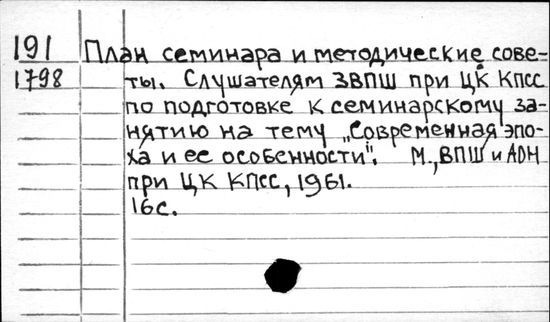 191 План семинара и методические сове-
1798 ты. Слушателям ЗВПШ при ЦК КПСС
по подготовке к семинарскому за-
нятию на тему „Современная эпо-
ха и ее особенности". М., ВПШ и АОН
при ЦК КПСС, 1961.
16с.